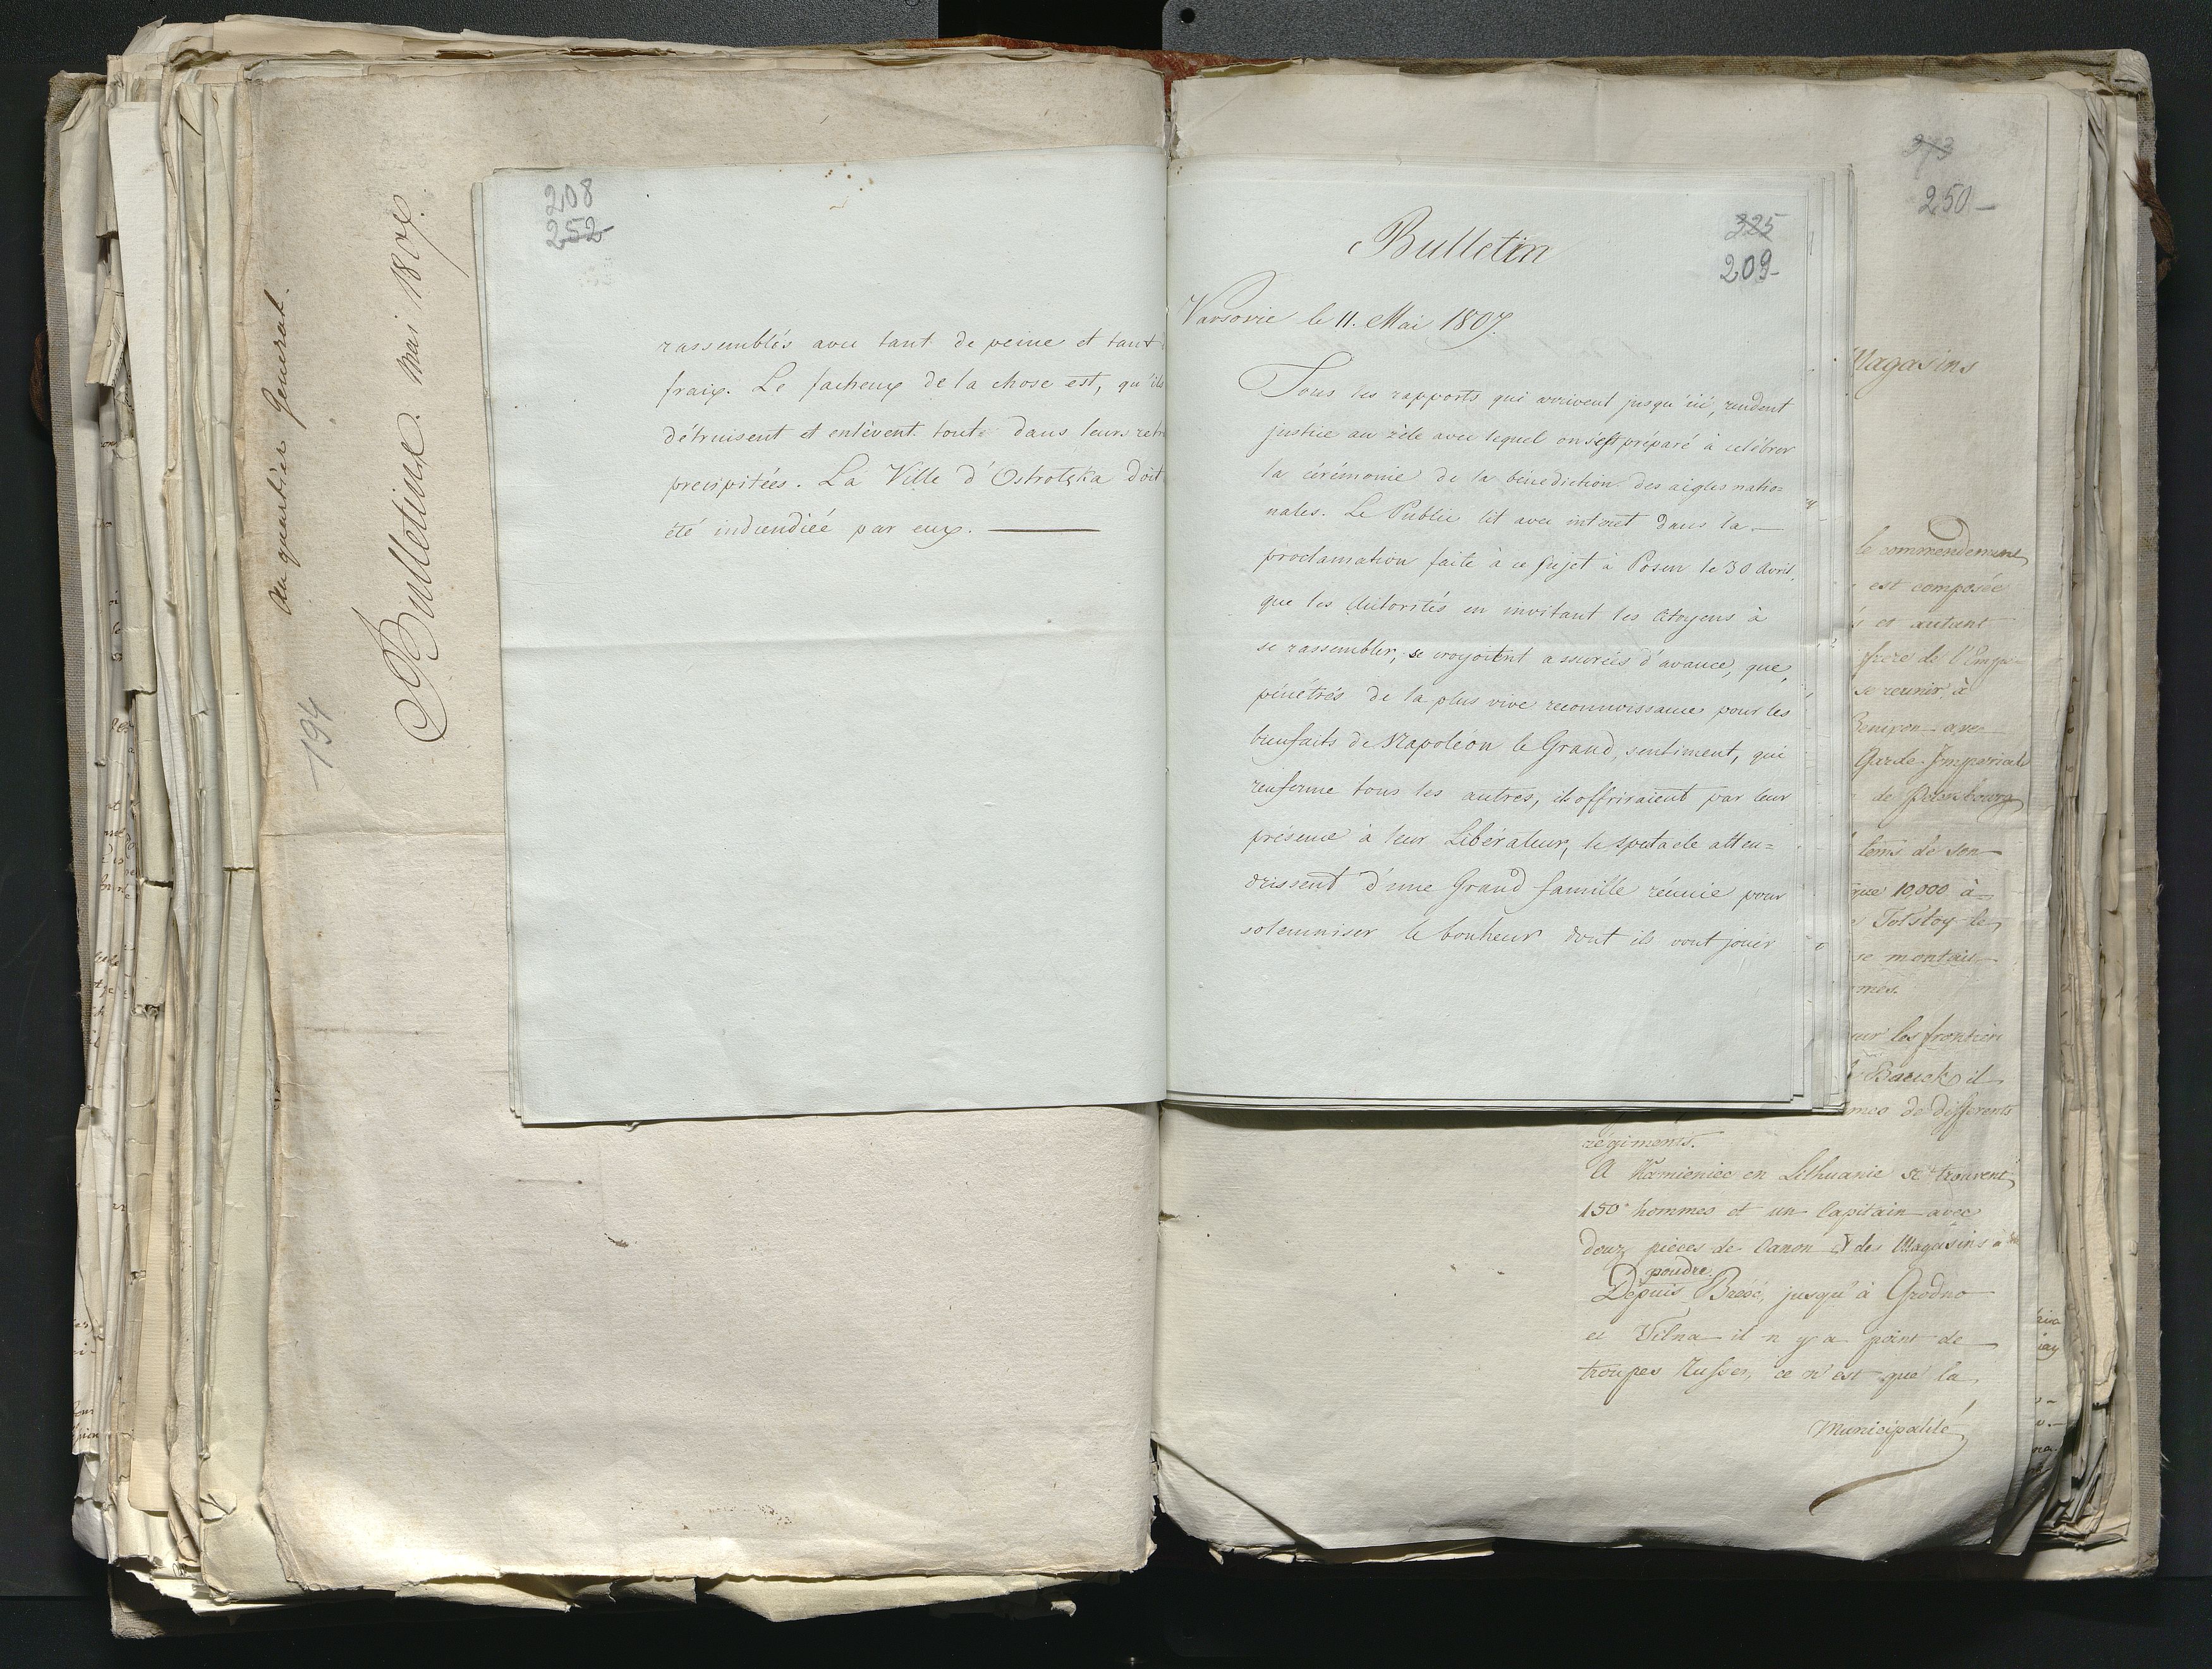 au quartier General.
Bulletins. mai 1807.
194
208
252
rassemblés avec tant de peine et tant
fraix. Le facheux de la chose est, qu'ils
détruisent et enlèvent tout dans leurs retr
precipitées. La Ville d'Ostrolęka doit
été indiendiée par eux. ———
Bulletin
325
209-
Varsovie le 11. Mai 1807.
Tous les rapports qui arrivent jusqu'ici, rendent
justice au zèle avec lequel on s'est préparé à celébrer
la cérémonie de la bénediction des aigles natio=
nales. Le Public lit avec intéret dans la —
proclamation faite à ce sujet à Posen le 30 Avril,
que les Autorités en invitant les Citoyens à
se rassembler, se croyoient assurées d'avance, que,
pénétrés de la plus vive reconnoissance pour les
bienfaits de Napoléon le Grand, sentiment, qui
renferme tous les autres, ils offriraient par leur
présence à leur Libérateur, le spectacle atten=
drissent d'une Grand famille réunie pour
solemniser le bonheur dont ils vont jouir
273
250-
Magasins
le commendement
est composée
et autant
frere de l'Empe-
se reunir à
Benixon avec
Garde-Imperiale
de Petersbourg
tems de son
que 10,000 à
Tolstoy le
se montait
mes.
sur les frontiers
il
mes de differents
régiments.
A Kamieniec en Lithuanie se trouvent
150 hommes et un Capitain avec
douz pièces de Canon & des Magasins à
poudre.
Depuis Brésc, jusqu'à Grodno
et Vilna il n'y a point de
troupes Russes, ce n'est que la
Municipalité